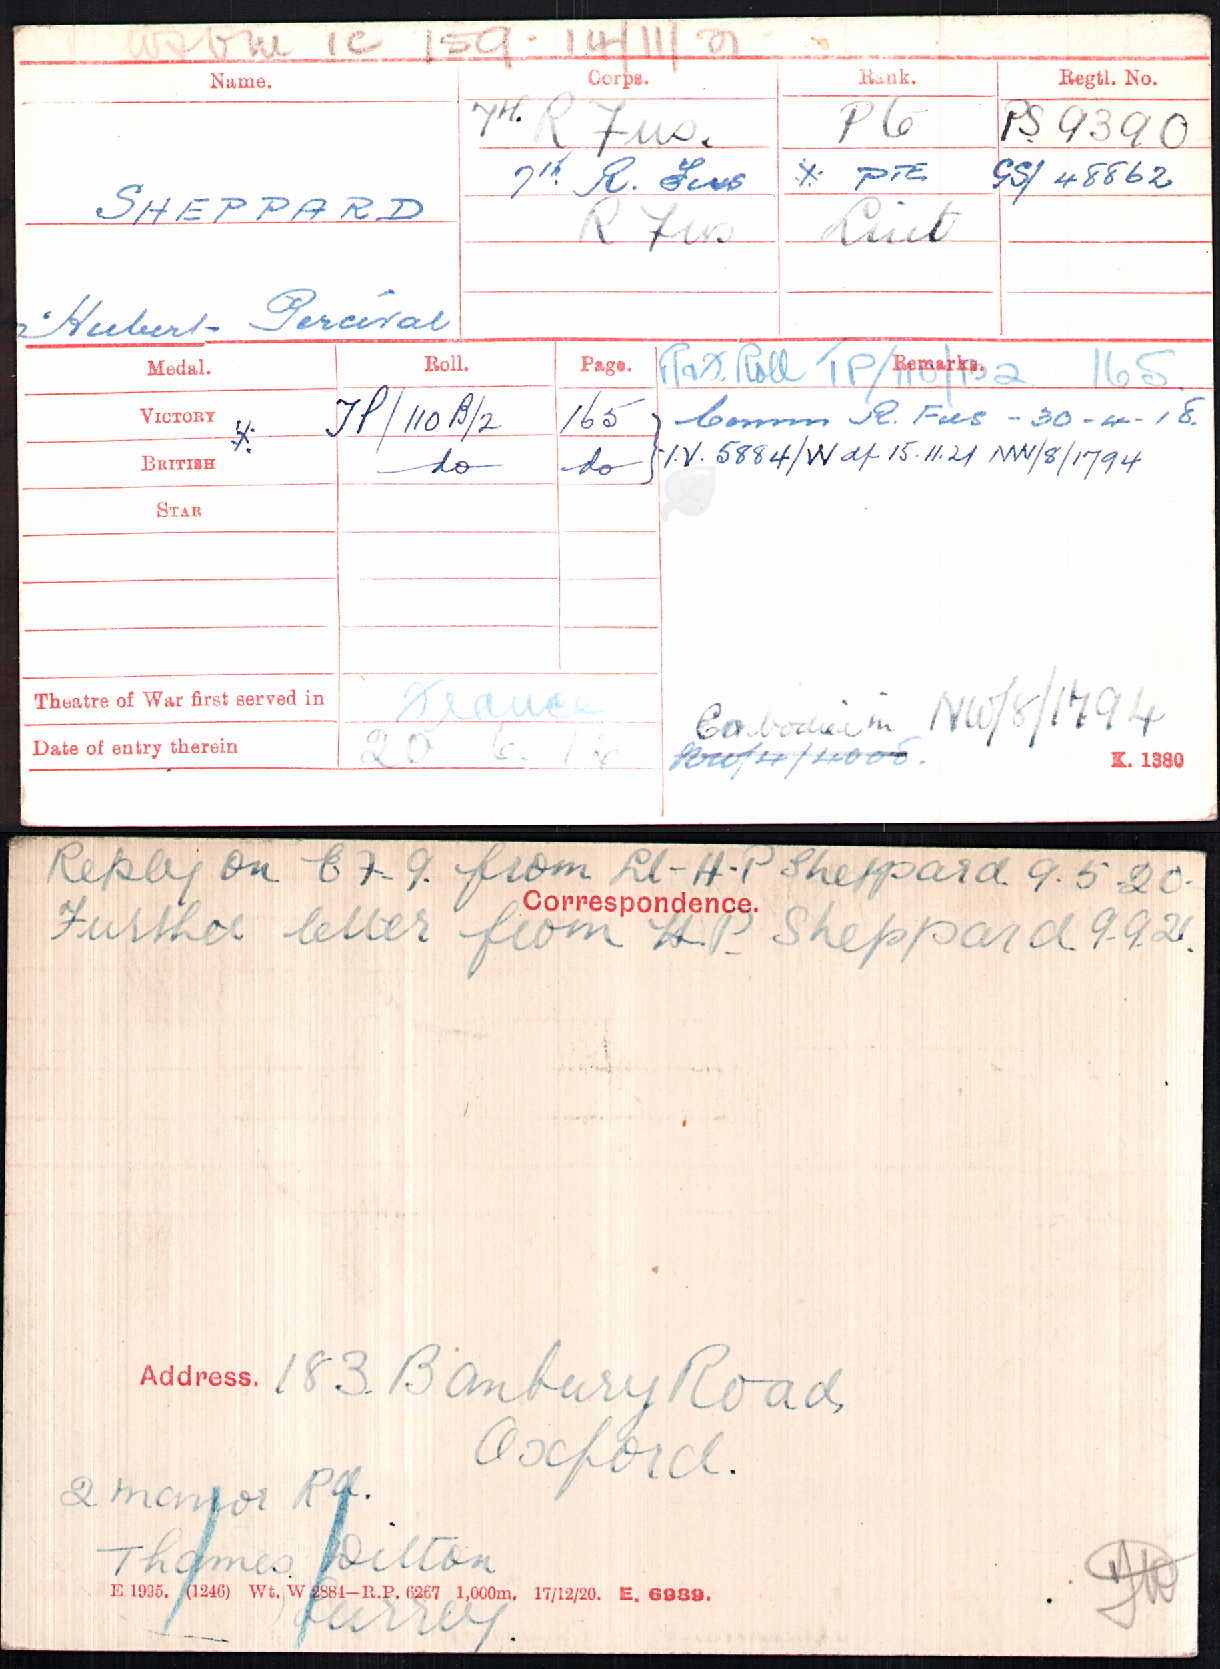 1C 159. 14/11/21
Name. Corps. Rank. Regtl. No.
7H. R Fus. Pte PS 9390
7th R. Fus * PTE GS/48862
SHEPPARD
R Fus Lieut
Hubert Percival
Medal. Roll. Page. Remarks.
Roll TP/110/B2 165
VICTORY * TP/110B/2 165 Comm R. Fus - 30-4-18.
BRITISH do do I.V. 5884/W df 15.11.21 NW/8/1794
STAR
Theatre of War first served in France
Date of entry therein 20 6. 16
NW/8/1794
NW/4/4006.
K. 1380
Reply on E F. 9. from Lt-H-P Sheppard 9.5.20.
Correspondence.
Further letter from H.P. Sheppard 9.9.21.
Address. 183 Banbury Road,
Oxford.
2 Manor Rd.
Thames Ditton
E 1995. (1246) Wt. W 2884—R.P. 6267 1,000m. 17/12/20. E. 6989.
Surrey.